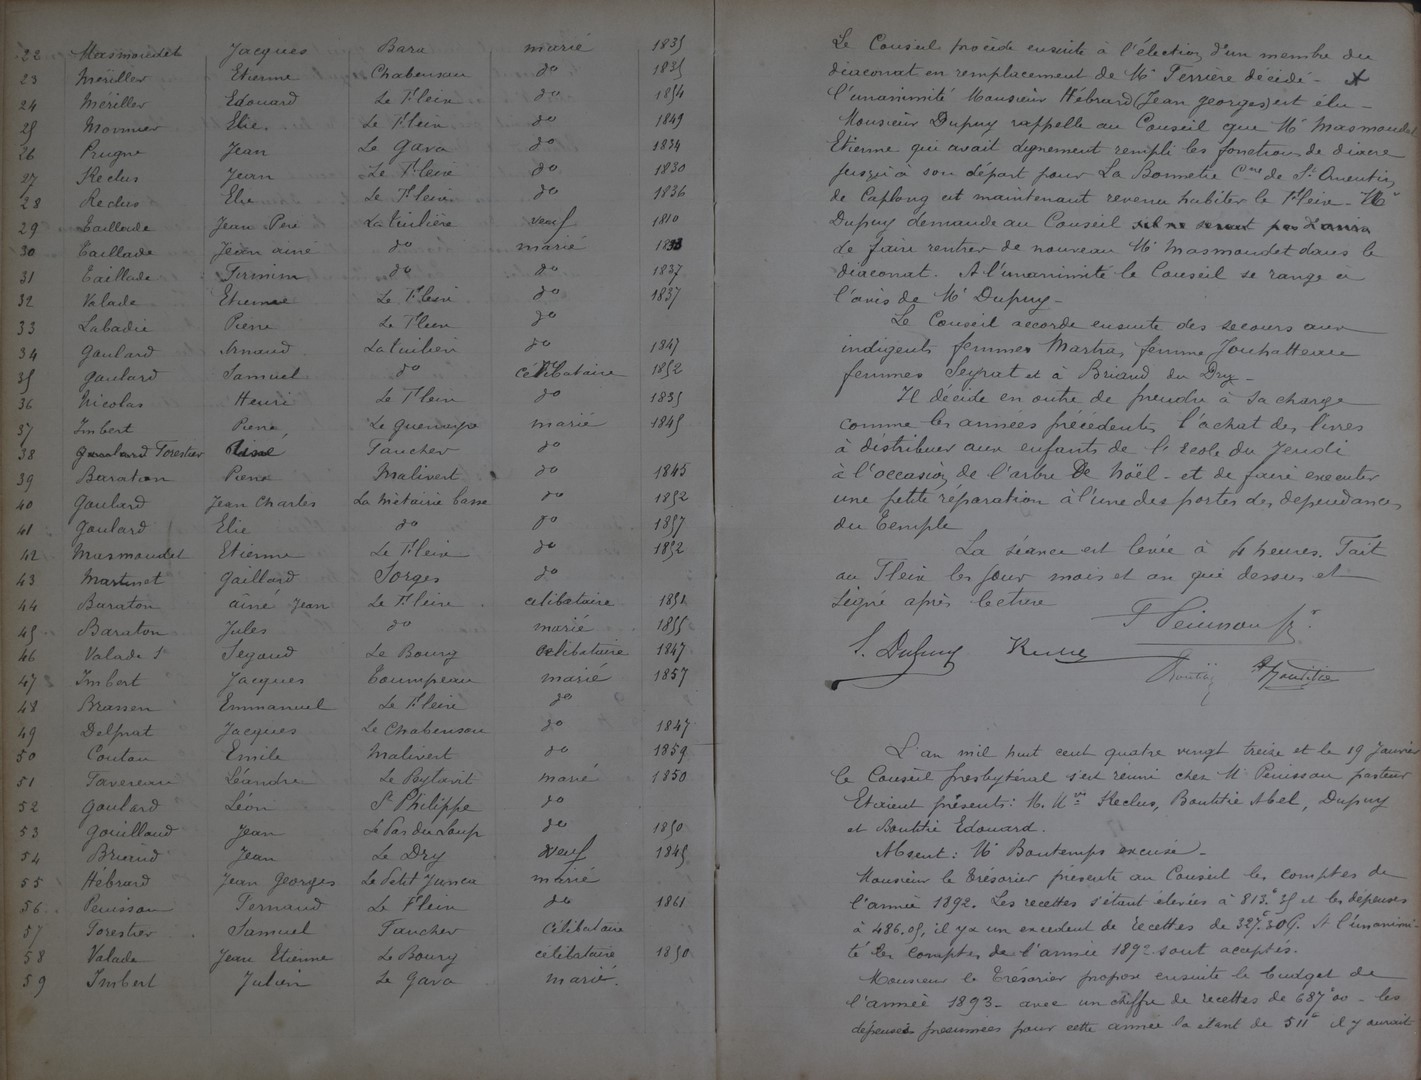 22 Masmoudet Jacques Bara marié 1835
23 Mériller Etienne Chabensau do 1835
24 Mériller Edouard Le Fleix do 1854
25 Monnier Elie Le Fleix do 1849
26 Prugne Jean Le Gava do 1834
27 Reclus Jean Le Fleix do 1830
28 Reclus Elie Le Fleix do 1836
29 Taillade Jean Père La Tuilière veuf 1810
30 Taillade Jean ainé do marié
31 Taillade Firmin do do 1837
32 Valade Etienne Le Fleix do 1837
33 Labadie Pierre Le Fleix do
34 Goulard Arnaud La Tuilière do 1847
35 Goulard Samuel do célibataire 1852
36 Nicolas Henri Le Fleix do 1835
37 Imbert Pierre marié 1845
38 Forestier Faucher do
39 Baraton Pierre Malivert do 1845
40 Goulard Jean Charles La Métairie basse do 1852
41 Goulard Elie do do 1857
42 Masmoudet Etienne Le Fleix do 1852
43 Martinet Gaillard Sorges do
44 Baraton ainé Jean Le Fleix célibataire 1851
45 Baraton Jules do marié 1855
46 Valade Segond Le Bourg célibataire 1847
47 Imbert Jacques marié 1857
48 Brassen Emmanuel Le Fleix do
49 Delprat Jacques Le Chabensau do 1847
50 Coutou Emile Malivert do 1859
51 Tavereau Léandre marié 1850
52 Goulard Léon St Philippe do
53 Gouilland Jean Le Pas du Loup do 1850
54 Briaud Jean Le Dry veuf 1845
55 Hébrard Jean Georges Le Petit Junca marié
56 Penisson Fernand Le Fleix do 1861
57 Forestier Samuel Faucher célibataire
58 Valade Jean Etienne Le Bourg célibataire 1850
59 Imbert Julien Le Gava marié.
Le Conseil procède ensuite à l'élection d'un membre du
diaconat en remplacement de Mr Ferrière décédé - A
l'unanimité Monsieur Hébrard (Jean georges) est élu -
Monsieur Dupuy rappelle au Conseil que Mr Masmoudet
Etienne qui avait dignement rempli les fonctions de diacre
jusqu'à son départ pour La Bonnetie Cne de St Quentin
de Caplong est maintenant revenu habiter le Fleix - Mr
Dupuy demande au Conseil
de faire rentrer de nouveau Mr Masmoudet dans le
diaconat. A l'unanimité le Conseil se range à
l'avis de Mr Dupuy -
Le Conseil accorde ensuite des secours aux
indigents femmes Martra, femme
femmes Seyrat et à Briaud du Dry -
Il décide en outre de prendre à sa charge
comme les années précédentes l'achat des livres
à distribuer aux enfants de l'école du Jeudi
à l'occasion de l'arbre de Noël - et de faire executer
une petite réparation à l'une des portes des dependances
du Temple
La séance est levée à 4 heures. Fait
au Fleix les jour mois et an que dessus et
signé après lecture
F Penisson pr.
S. Dupuy Reclus
Boutitie
L'an mil huit cent quatre vingt treize et le 19 Janvier
le Conseil presbytéral s'est réuni chez Mr Penisson pasteur
Etaient présents: M. Mrs Reclus, Boutitie Abel, Dupuy
et Boutitie Edouard.
Absent: Mr Bontemps excusé -
Monsieur le trésorier présente au Conseil les comptes de
l'année 1892. Les recettes s'étant élevées à 813f.35 et les dépenses
à 486.05, il y a un excedent de recettes de 327f.30c. A l'unanimi-
té les comptes de l'année 1892 sont acceptés.
Monsieur le Trésorier propose ensuite le budget de
l'année 1893 - avec un chiffre de recettes de 687f00 - les
dépenses presumées pour cette année la étant de 511f il y aurait